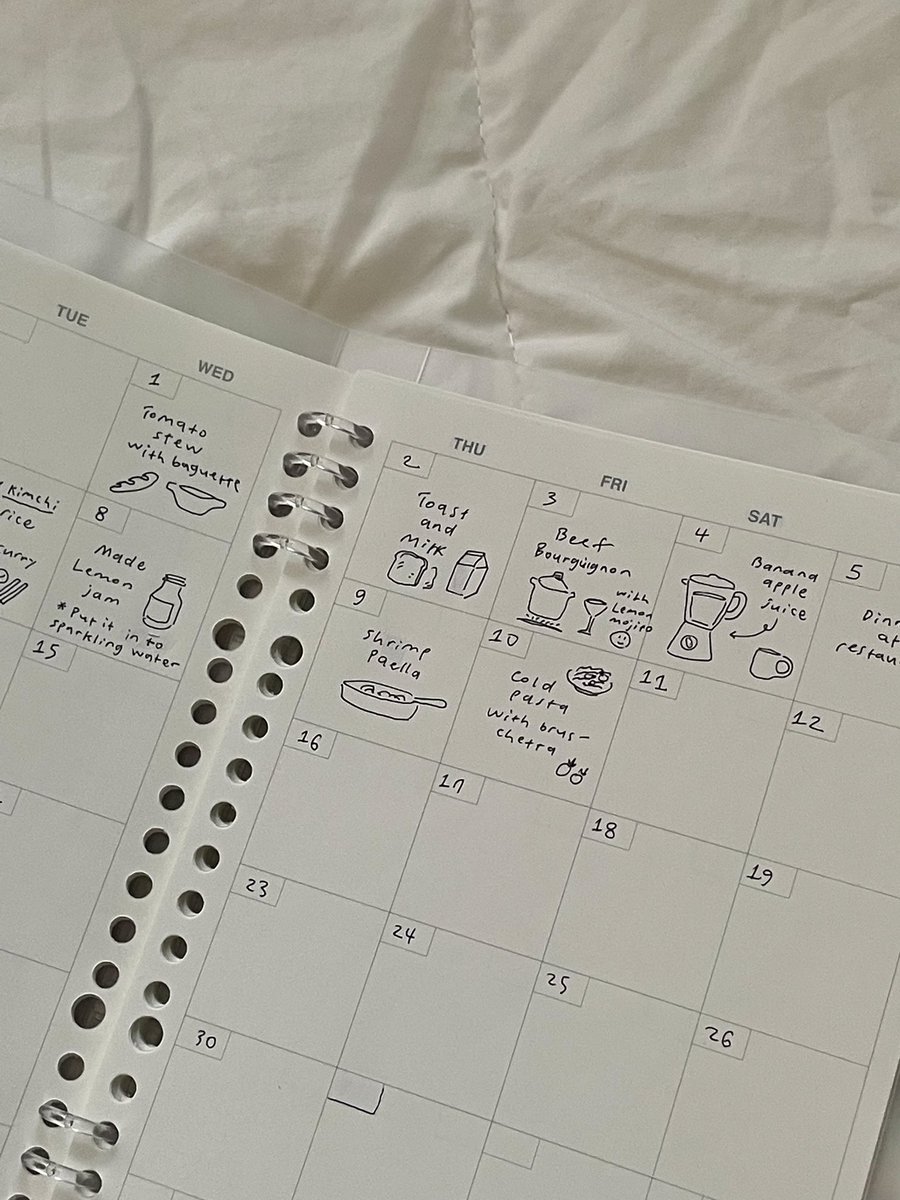 TUE
WED
THU
FRI
SAT
1
Tomato
stew
with baguette
2
Toast
and
Milk
3
Beef
Bourguignon
with
Lemon
mojito
4
Banana
apple
juice
5
at
Kimchi
rice
curry
8
Made
Lemon
jam
*Put it in to
sparkling water
9
Shrimp
paella
10
Cold
pasta
with brus-
chetta
11
12
15
16
17
18
19
23
24
25
26
30